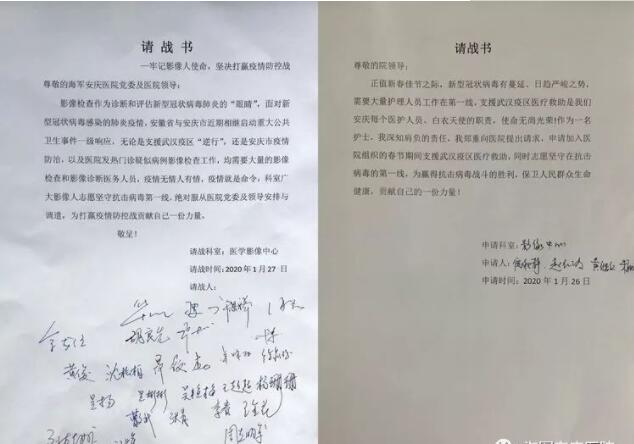 请战书
—牢记影像人使命，坚决打赢疫情防控战
尊敬的海军安庆医院党委及医院领导：
影像检查作为诊断和评估新型冠状病毒肺炎的“眼睛”，面对新
型冠状病毒感染的肺炎疫情，安徽省与安庆市近期相继启动重大公共
卫生事件一级响应，无论是支援武汉疫区“逆行”，还是安庆市疫情
防治，以及医院发热门诊疑似病例影像检查工作，均需要大量的影像
检查和影像诊断医务人员，疫情无情人有情，疫情就是命令，科室广
大影像人志愿坚守抗击病毒第一线，绝对服从医院党委及领导安排与
调遣，为打赢疫情防控战贡献自己一份力量。
敬呈！
请战科室：医学影像中心
请战时间：2020年1月27日
请战人：
黄俊 沈松柏
吴杨 吴彬彬 吴桂梅 王超超 杨珊珊
李贵
请战书
尊敬的院领导：
正值新春佳节之际，新型冠状病毒有蔓延、日趋严峻之势，
需要大量护理人员工作在第一线，支援武汉疫区医疗救助是我们
安庆每个医护人员、白衣天使的职责，使命无尚光荣!作为一名
护士，我深知肩负的责任，我郑重向医院提出请求，申请加入医
院组织的春节期间支援武汉疫区医疗救助，同时志愿坚守在抗击
病毒的第一线，为赢得抗击病毒战斗的胜利，保卫人民群众生命
健康，贡献自己的一份力量！
申请科室：影像中心
申请人：
申请时间：2020年1月26日